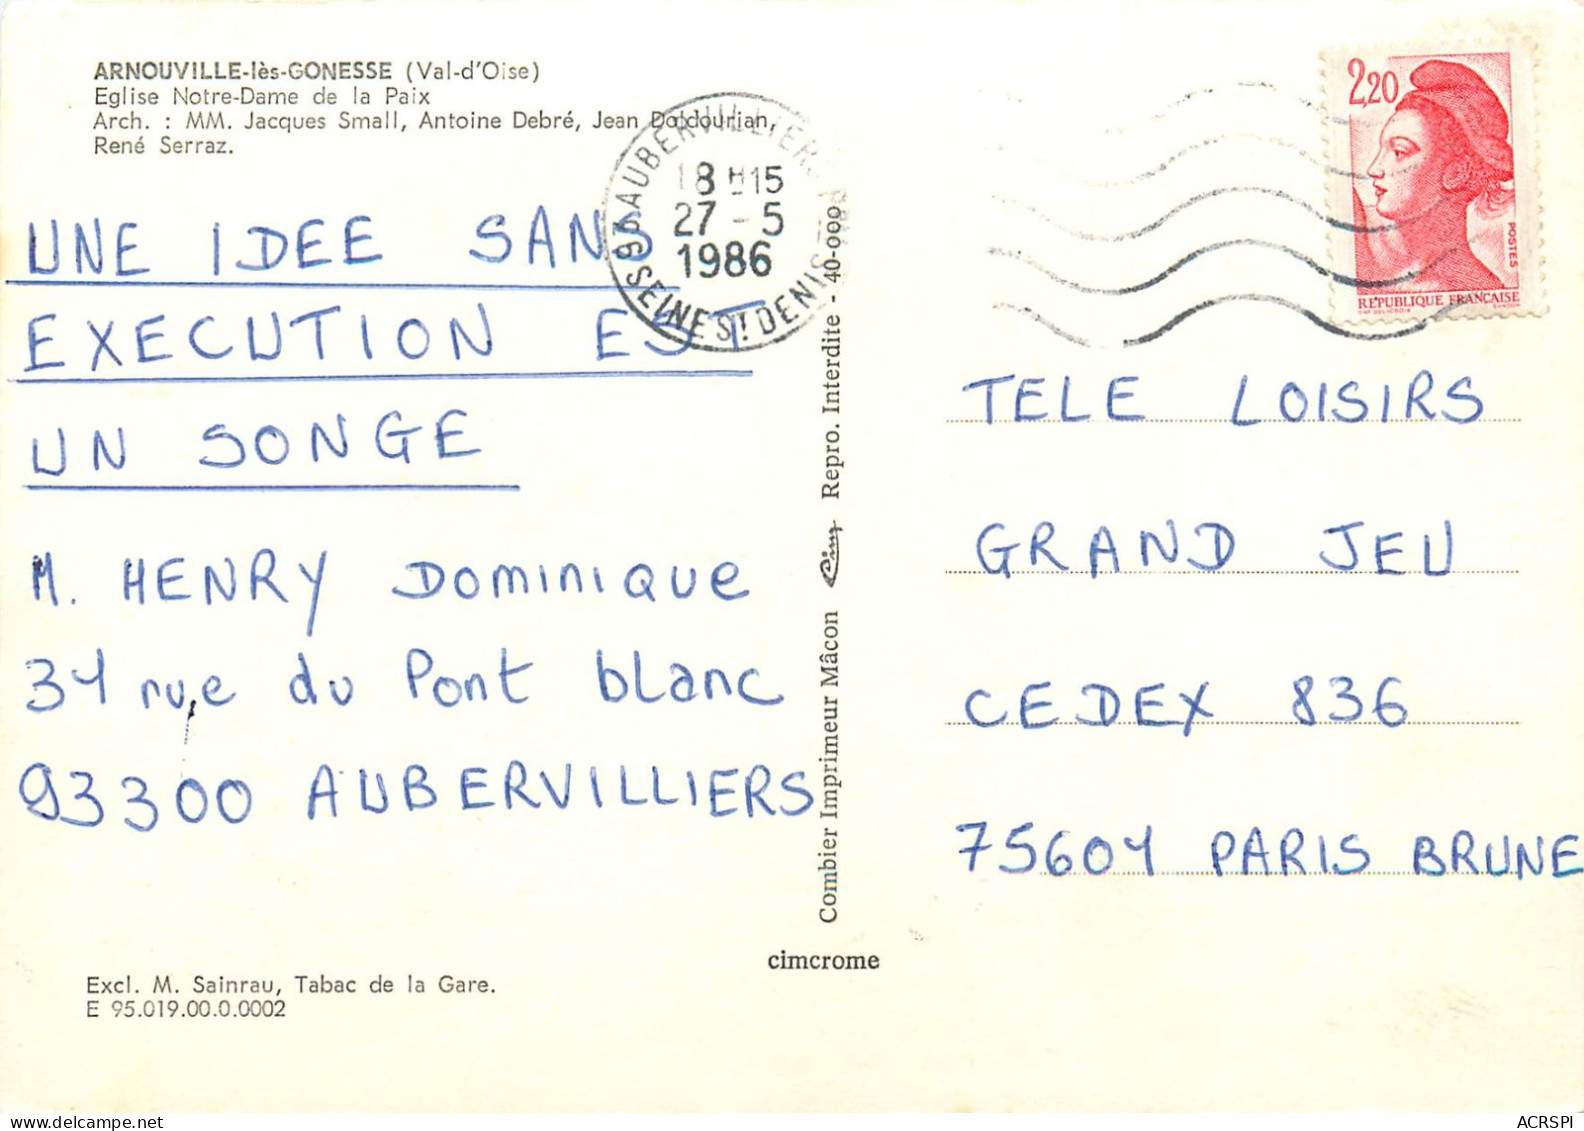 ARNOUVILLE-lès-GONESSE (Val-d'Oise)
Eglise Notre-Dame de la Paix
Arch. : MM. Jacques Small, Antoine Debré, Jean Doldourian,
René Serraz.
UNE IDEE SANS
EXECUTION EST
UN SONGE
M. HENRY Dominique
31 rue du Pont blanc
93300 AUBERVILLIERS
Excl. M. Sainrau, Tabac de la Gare.
E 95.019.00.0.0002
93 AUBERVILLIERS
18 H 15
27 - 5
1986
SEINE ST DENIS
Combier Imprimeur Mâcon Cim Repro. Interdite - 40-000
cimcrome
2,20
POSTES
REPUBLIQUE FRANÇAISE
TELE LOISIRS
GRAND JEU
CEDEX 836
75601 PARIS BRUNE
ACRSPI